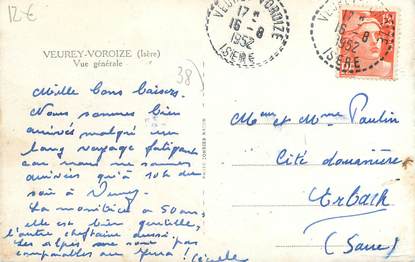 12€
VEUREY-VOROIZE (Isère)
Vue générale
38)
VEUREY-VOROIZE
17 H
16-8
1952
ISERE
17 H
16-8
1952
ISERE
Mille bons baisers.
Nous sommes bien
arrivés malgré un
long voyage fatigant
car nous ne sommes
arrivés qu'à 10h du
soir à Veurey
La monitrice a 50 ans,
elle est bien gentille,
l'autre cheftaine aussi.
Les alpes ne sont pas
comparables au Jura!
Mr et Mme Paulin
Cité douanière
Erbach
(Sarre)